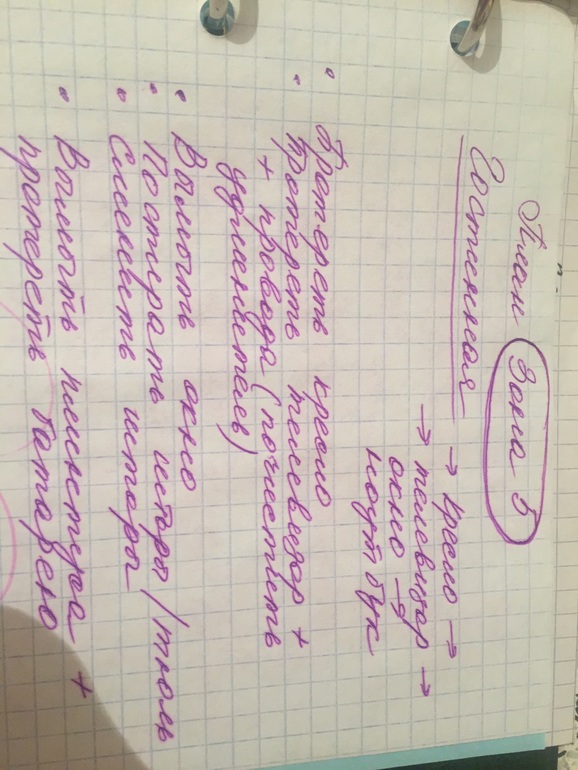 План Зона 5
Гостинная
→ кресло →
→ телевизор →
окно →
ноутбук
• Протереть кресло
• Протереть телевизор +
+ провода (почистить
удлинитель)
• Вымыть окно
• Постирать шторы / тюль
• Сменить шторы
• Вымыть плинтуса +
протереть батарею